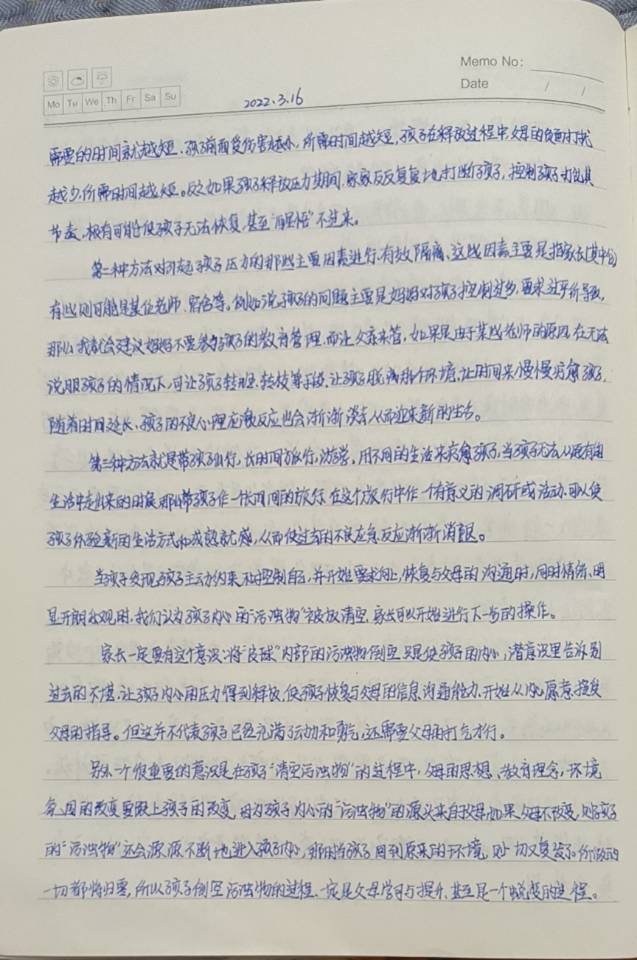 Memo No:
Mo Tu We Th Fr Sa Su
Date / /
2022.3.16
需要的时间就越短.孩子前面受伤害越小,所需时间越短,孩子在释放过程中父母的负面打扰
越少,所需时间越短。反之如果孩子释放压力期间,家长反反复复地打断孩子,控制孩子打乱其
节奏,极有可能使孩子无法恢复,甚至"醒悟"不过来。
第二种方法对引起孩子压力的那些主要因素进行有效隔离、这些因素主要是指家长(其中的)
有些则可能是某位老师.宿舍等。例如说孩子的问题主要是妈妈对孩子控制过多.要求过严导致,
那么我就会建议妈妈不要参与孩子的教育管理.而让父亲来管,如果是由于某些老师的原因,在无法
说服孩子的情况下,可让孩子转班.转校等手段,让孩子脱离那个环境,让时间来慢慢疗愈孩子,
随着时间延长、孩子的不良心理应激反应也会渐渐淡去从而迎来新的生活。
第三种方法就是带孩子出行,长时间旅行,游学,用不同的生活来疗愈孩子,当孩子无法从原有的
生活中走出来的时候,那么带孩子作一长时间的旅行,在这个旅行中作一个有意义的调研或活动,可以使
孩子体验新的生活方式和成就感,从而使过去的不良应急反应渐渐消退。
当家长发现孩子主动约束和控制自己,并开始要求向上,恢复与父母的沟通时,同时情绪、明
显开朗、乐观时,我们认为孩子内心的"污浊物"被放清空,家长可以开始进行下一步的操作。
家长一定要有这个意识:将"皮球"内部的污浊物倒空只是使孩子的内心,潜意识里告诉别
过去的不堪.让孩子内心的压力得到释放,使孩子恢复与父母的信息沟通能力,开始从内心愿意接受
父母的指导。但这并不代表孩子已经充满了活动和勇气,还需要父母的打气才行。
另外一个很重要的意识是:在孩子"清空污浊物"的过程中,父母的思想、教育理念,环境
等因的改变要跟上孩子的改变,因为孩子内心的"污浊物"的源头来自父母,如果父母不改变,则孩子
的"污浊物"还会源源不断地进入孩子内心,那么当孩子回到原来的环境,则一切又复发了。所做的
一切都将归零,所以孩子倒空污浊物的过程.一定是父母学习与提升,甚至是一个蜕变的过程。